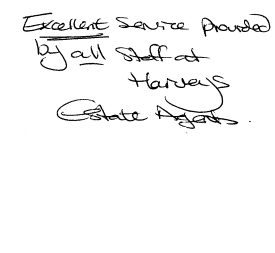 Excellent Service provided
by all Staff at
Harveys
Estate Agents.